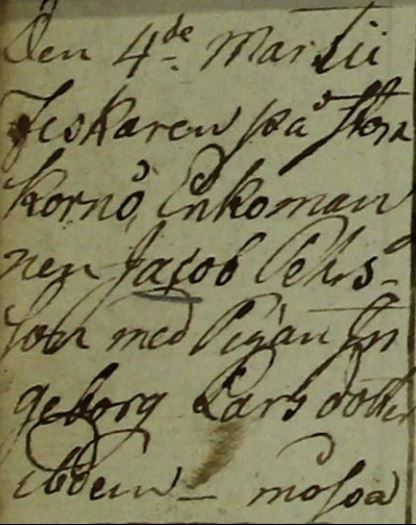 Den 4de Martii
Fiskaren på Stora
Kornö, Enkoman
nen Jacob Pehrs-
son med Pigan In
geborg Lars dotter
ibdem –